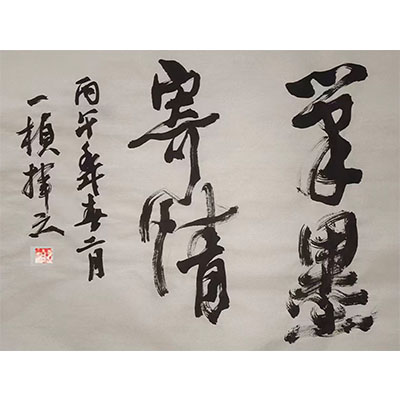 笔墨
寄情
丙午年春二月
一楨挥之